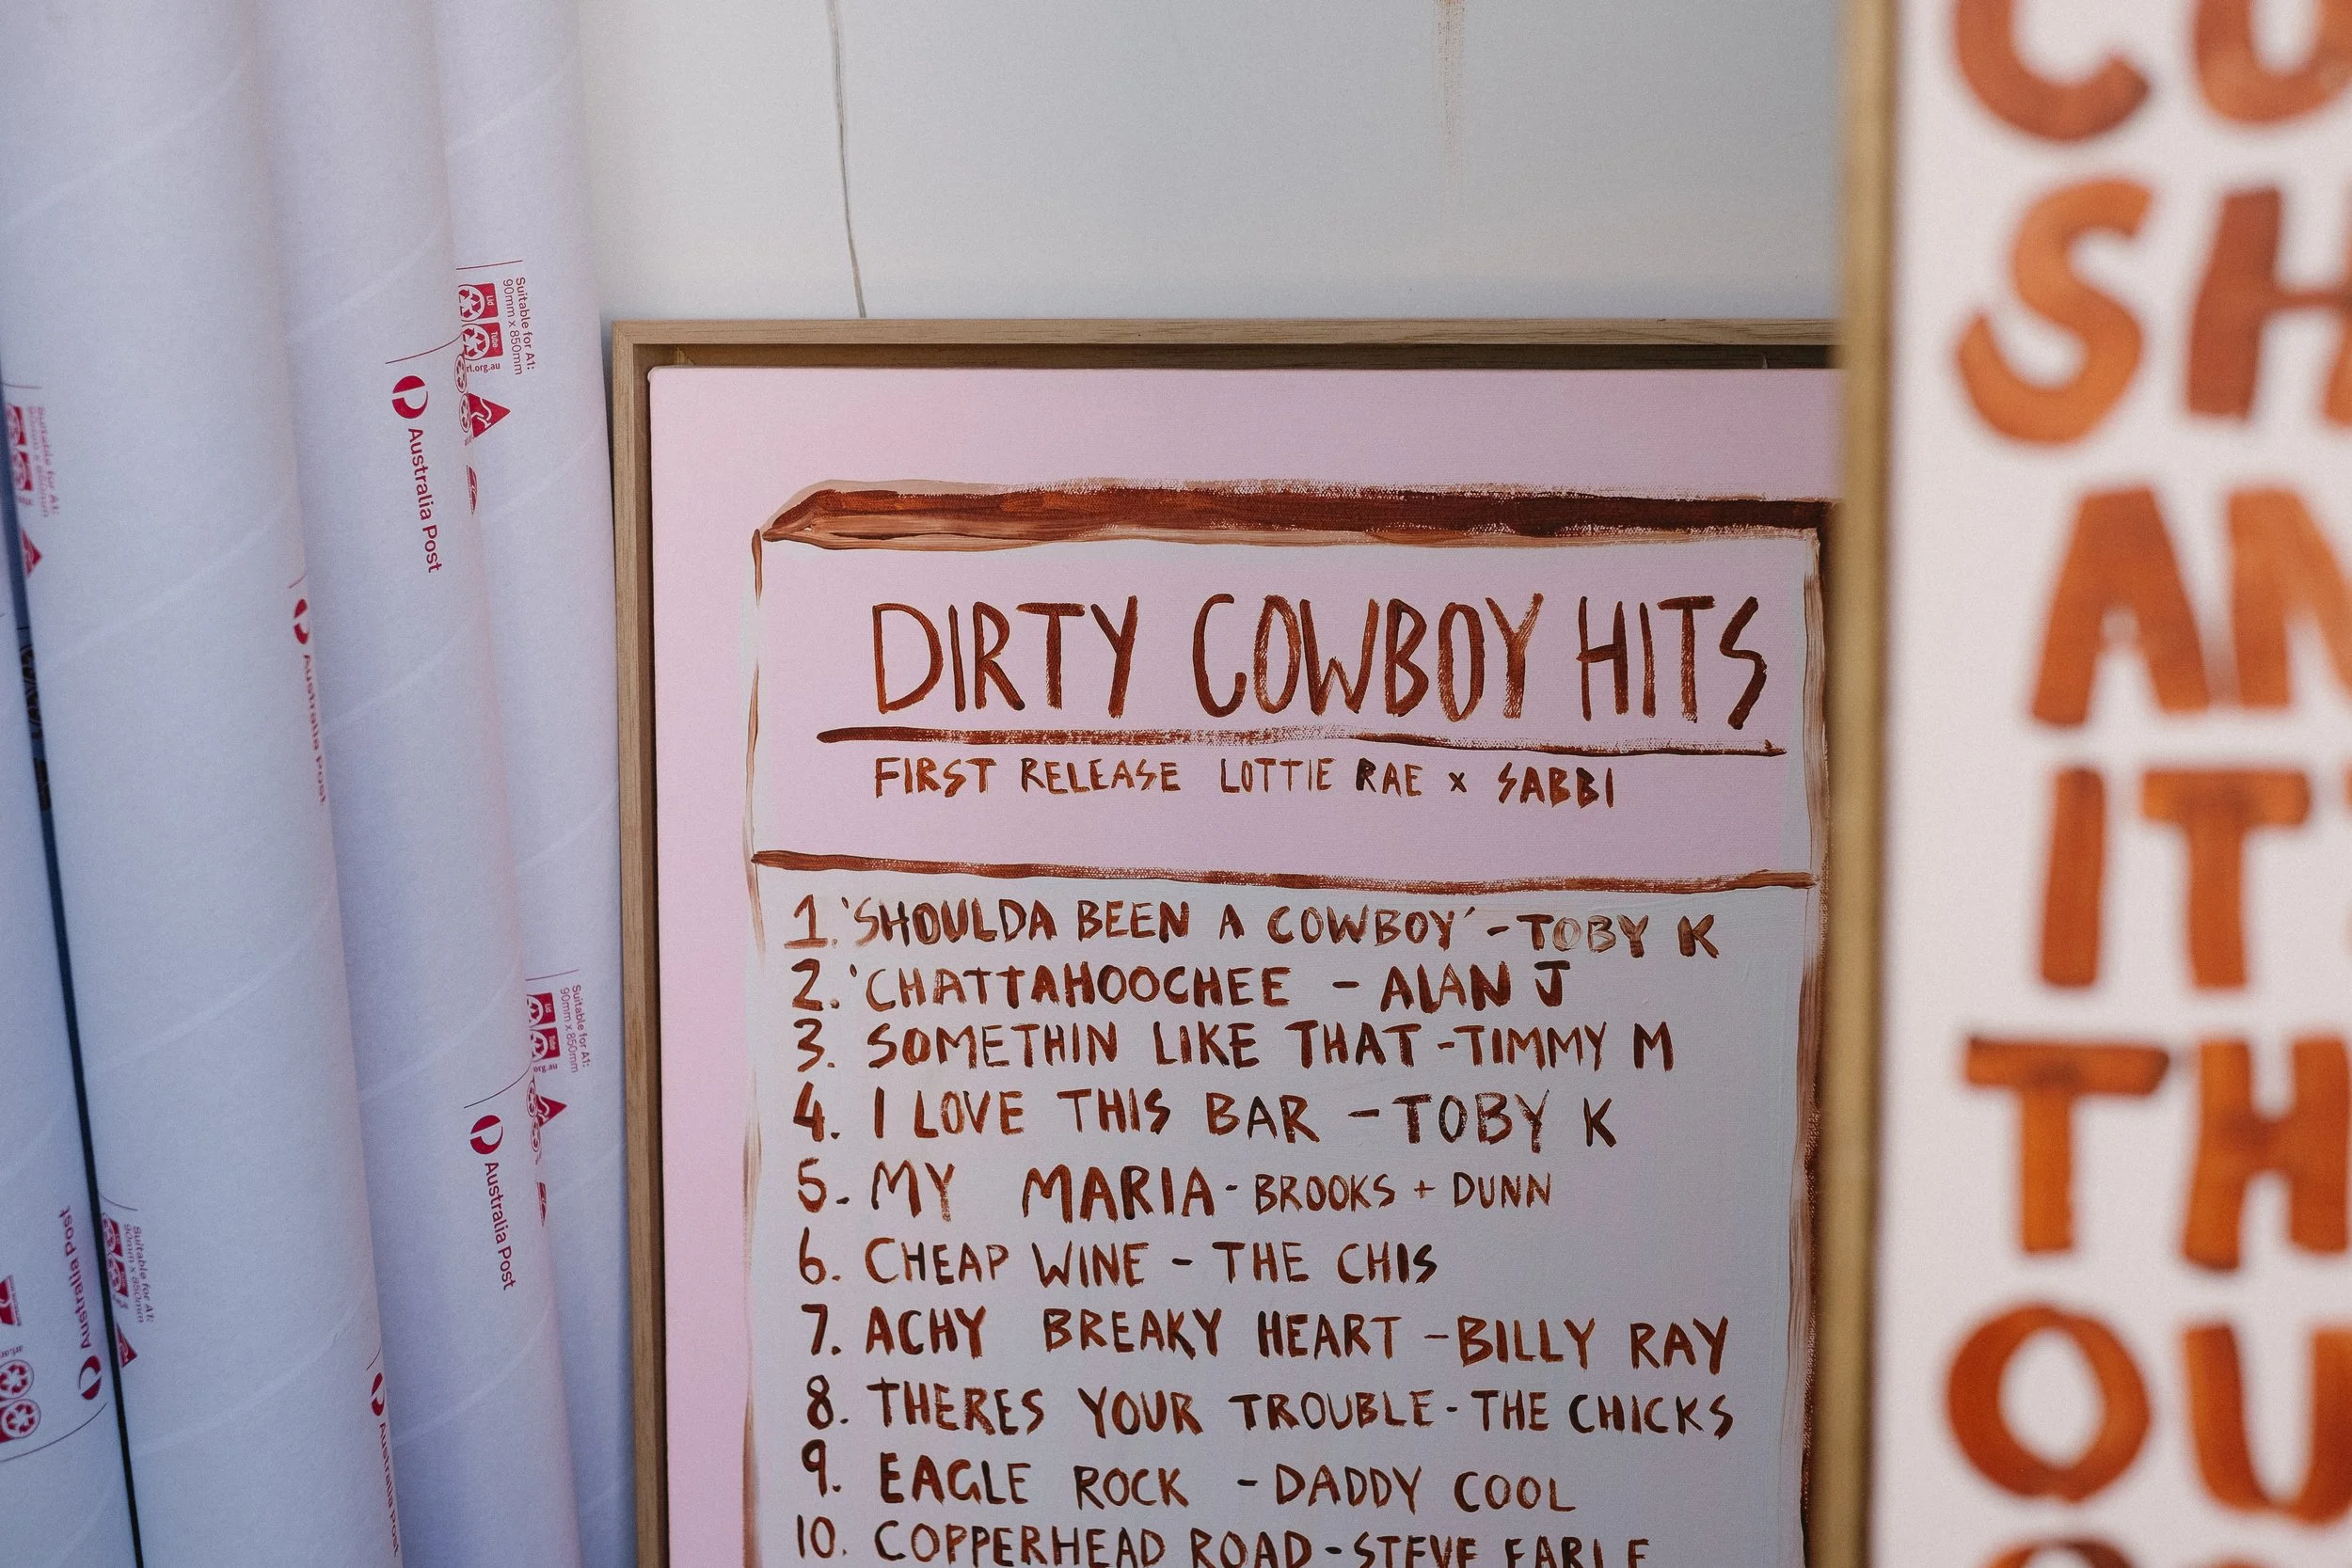 Suitable for A1:
90mm x 850mm
Lid
Tube
Australia Post
Australia Post
Suitable for A1:
90mm x 850mm
Lid
Tube
org.au
Australia Post
Australia Post
Suitable for A1:
90mm x 850mm
Australia Post
DIRTY COWBOY HITS
FIRST RELEASE LOTTIE RAE x SABBI
1. 'SHOULDA BEEN A COWBOY' - TOBY K
2. 'CHATTAHOOCHEE - ALAN J
3. SOMETHIN LIKE THAT - TIMMY M
4. I LOVE THIS BAR - TOBY K
5. MY MARIA - BROOKS + DUNN
6. CHEAP WINE - THE CHIS
7. ACHY BREAKY HEART - BILLY RAY
8. THERES YOUR TROUBLE - THE CHICKS
9. EAGLE ROCK - DADDY COOL
10. COPPERHEAD ROAD - STEVE EARLE
SH
AN
IT
TH
OU